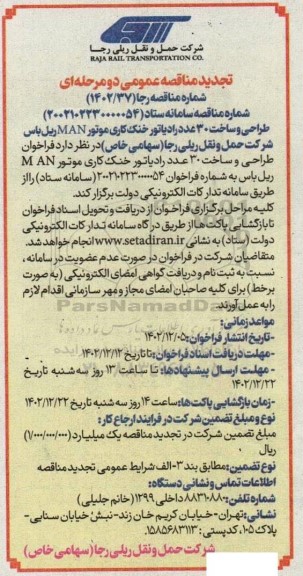 شرکت حمل و نقل ریلی رجا
RAJA RAIL TRANSPORTATION CO.
تجدید مناقصه عمومی دو مرحله‌ای
شماره مناقصه رجا (۱۴۰۲/۳۷)
شماره مناقصه سامانه ستاد (۲۰۰۲۱۰۲۲۳۰۰۰۰۰۵۴)
طراحی و ساخت ۳۰ عدد رادیاتور خنک کاری موتور MAN ریل باس
شرکت حمل و نقل ریلی رجا (سهامی خاص) در نظر دارد فراخوان
طراحی و ساخت ۳۰ عدد رادیاتور خنک کاری موتور MAN
ریل باس به شماره فراخوان ۲۰۰۲۱۰۲۲۳۰۰۰۰۰۵۴ (سامانه ستاد) را از
طریق سامانه تدارکات الکترونیکی دولت برگزار کند.
کلیه مراحل برگزاری فراخوان از دریافت و تحویل اسناد فراخوان
تا بازگشایی پاکت ها از طریق درگاه سامانه تدارکات الکترونیکی
دولت (ستاد) به نشانی www.setadiran.ir انجام خواهد شد.
متقاضیان شرکت در فراخوان در صورت عدم عضویت در سامانه،
نسبت به ثبت نام و دریافت گواهی امضای الکترونیکی (به صورت
برخط) برای کلیه صاحبان امضای مجاز و مهر سازمانی اقدام لازم
را به عمل آورند.
مواعد زمانی:
-تاریخ انتشار فراخوان: ۱۴۰۲/۱۲/۰۵
-مهلت دریافت اسناد فراخوان: تا تاریخ ۱۴۰۲/۱۲/۱۲
-مهلت ارسال پیشنهادها: تا ساعت ۱۳ روز سه شنبه تاریخ
۱۴۰۲/۱۲/۲۲
-زمان بازگشایی پاکت ها: ساعت ۱۴ روز سه شنبه تاریخ ۱۴۰۲/۱۲/۲۲
نوع و مبلغ تضمین شرکت در فرایند ارجاع کار:
مبلغ تضمین شرکت در تجدید مناقصه یک میلیارد (۱/۰۰۰/۰۰۰/۰۰۰)
ریال
نوع تضمین: مطابق بند ۳-الف شرایط عمومی تجدید مناقصه
اطلاعات تماس و نشانی دستگاه:
شماره تلفن: ۸۸۳۱۰۸۸۰ داخلی ۱۲۹۹ (خانم جلیلی)
نشانی: تهران-خیابان کریم خان زند-نبش خیابان سنایی-
پلاک ۱۰۵، کدپستی: ۱۵۸۵۶۸۳۱۱۳.
شرکت حمل و نقل ریلی رجا (سهامی خاص)